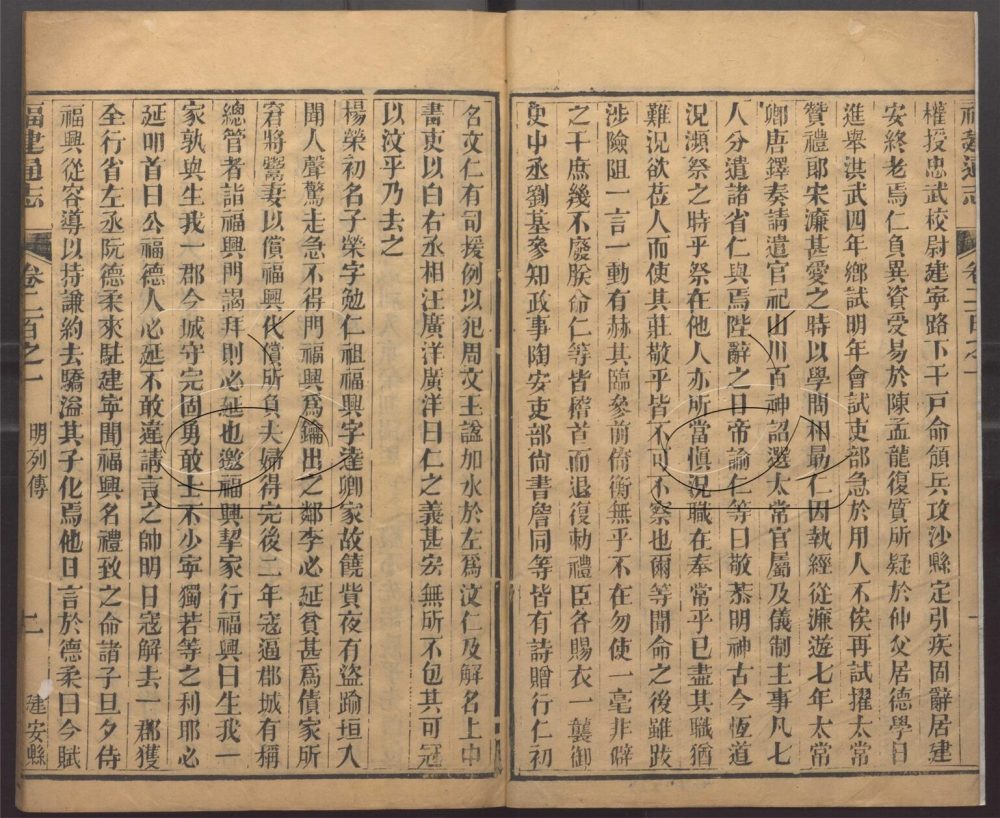 福建通志
卷二百之一
一
權授忠武校尉建寧路下千戶命領兵攻沙縣定引疾固辭居建
安終老焉仁負異資受易於陳孟龍復質所疑於仲父居德學日
進舉洪武四年鄉試明年會試吏部急於用人不俟再試擢太常
贊禮郎宋濂甚愛之時以學問相勗仁因執經從濂遊七年太常
卿唐鐸奏請遣官祀山川百神詔選太常官屬及儀制主事凡七
人分遣諸省仁與焉陛辭之日帝諭仁等曰敬恭明神古今恆道
況瀕祭之時乎祭在他人亦所當慎況職在奉常乎已盡其職猶
難況欲莅人而使其莊敬乎皆不可不察也爾等聞命之後雖跋
涉險阻一言一動有赫其臨參前倚衡無乎不在勿使一毫非僻
之干庶幾不廢朕命仁等皆稽首而退復勅禮臣各賜衣一襲御
史中丞劉基參知政事陶安吏部尙書詹同等皆有詩贈行仁初
名文仁有司援例以犯周文王諡加水於左爲汶仁及解名上中
書吏以白右丞相汪廣洋廣洋曰仁之義甚宏無所不包其可冠
以汶乎乃去之
楊榮初名子榮字勉仁祖福興字達卿家故饒貲夜有盜踰垣入
聞人聲驚走急不得門福興爲鑰出之鄰李必延貧甚爲債家所
窘將鬻妻以償福興代償所負夫婦得完後二年寇逼郡城有稱
總管者詣福興門謁拜則必延也邀福興挈家行福興曰生我一
家孰與生我一郡今城守完固勇敢士不少寧獨若等之利耶必
延叩首曰公福德人必延不敢違請言之帥明日寇解去一郡獲
全行省左丞阮德柔來駐建寧聞福興名禮致之命諸子旦夕侍
福興從容導以持謙約去驕溢其子化焉他日言於德柔曰今賦
福建通志
卷二百之一
明列傳
二
建安縣